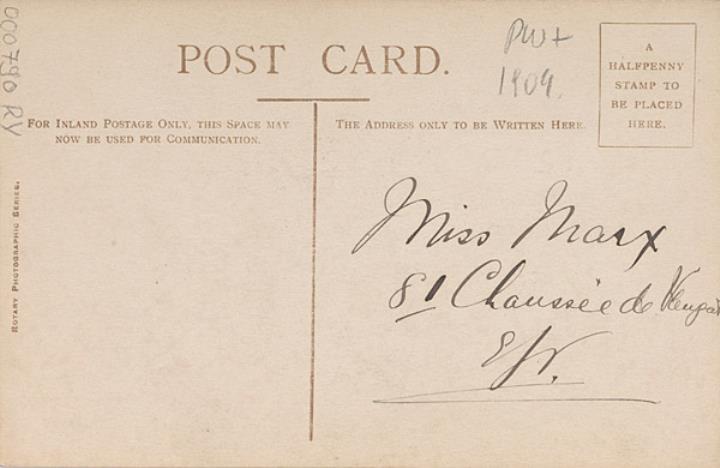 000790 RY
POST CARD.
1909.
A
HALFPENNY
STAMP TO
BE PLACED
HERE.
FOR INLAND POSTAGE ONLY, THIS SPACE MAY
NOW BE USED FOR COMMUNICATION.
THE ADDRESS ONLY TO BE WRITTEN HERE.
ROTARY PHOTOGRAPHIC SERIES.
Miss Marx
81 Chaussée de
E/V.